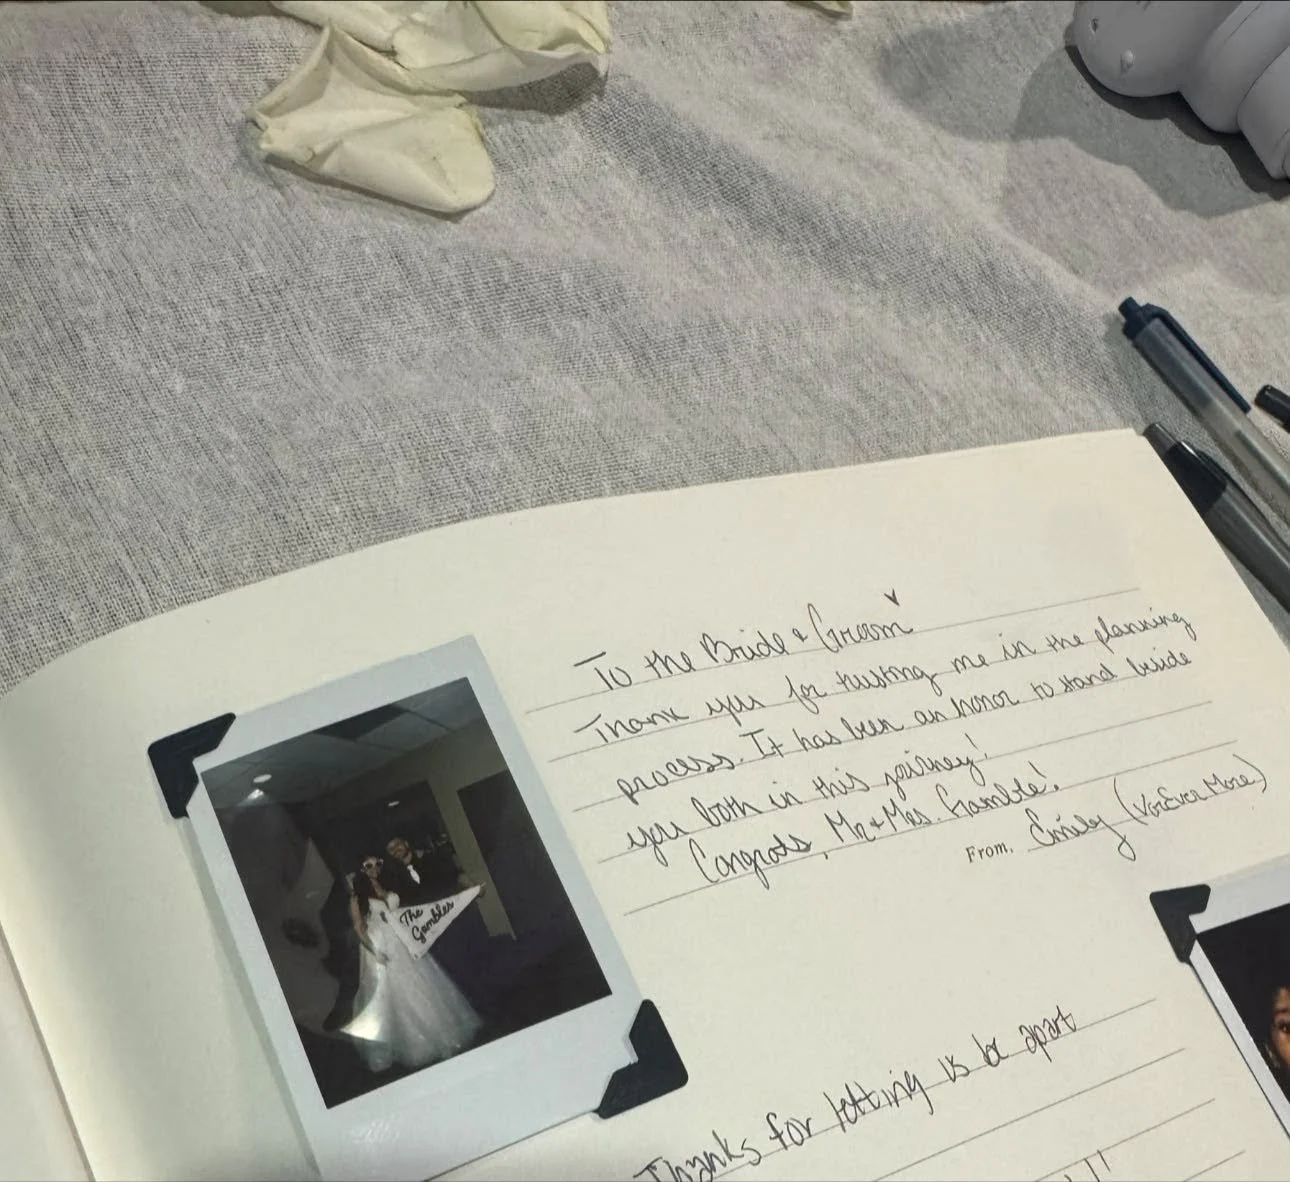 The
Gambles
To the Bride & Groom
Thank you for trusting me in the planning
process. It has been an honor to stand beside
you both in this journey!
Congrats, Mr & Mrs. Gamble!
From, Emily (VorEver More)
Thanks for letting us be apart